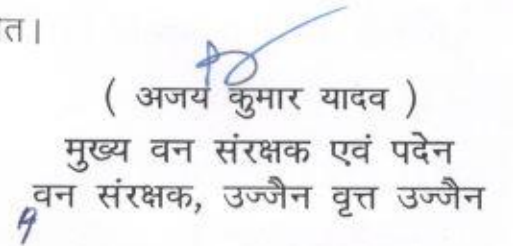 त।
( अजय कुमार यादव )
मुख्य वन संरक्षक एवं पदेन
वन संरक्षक, उज्जैन वृत्त उज्जैन